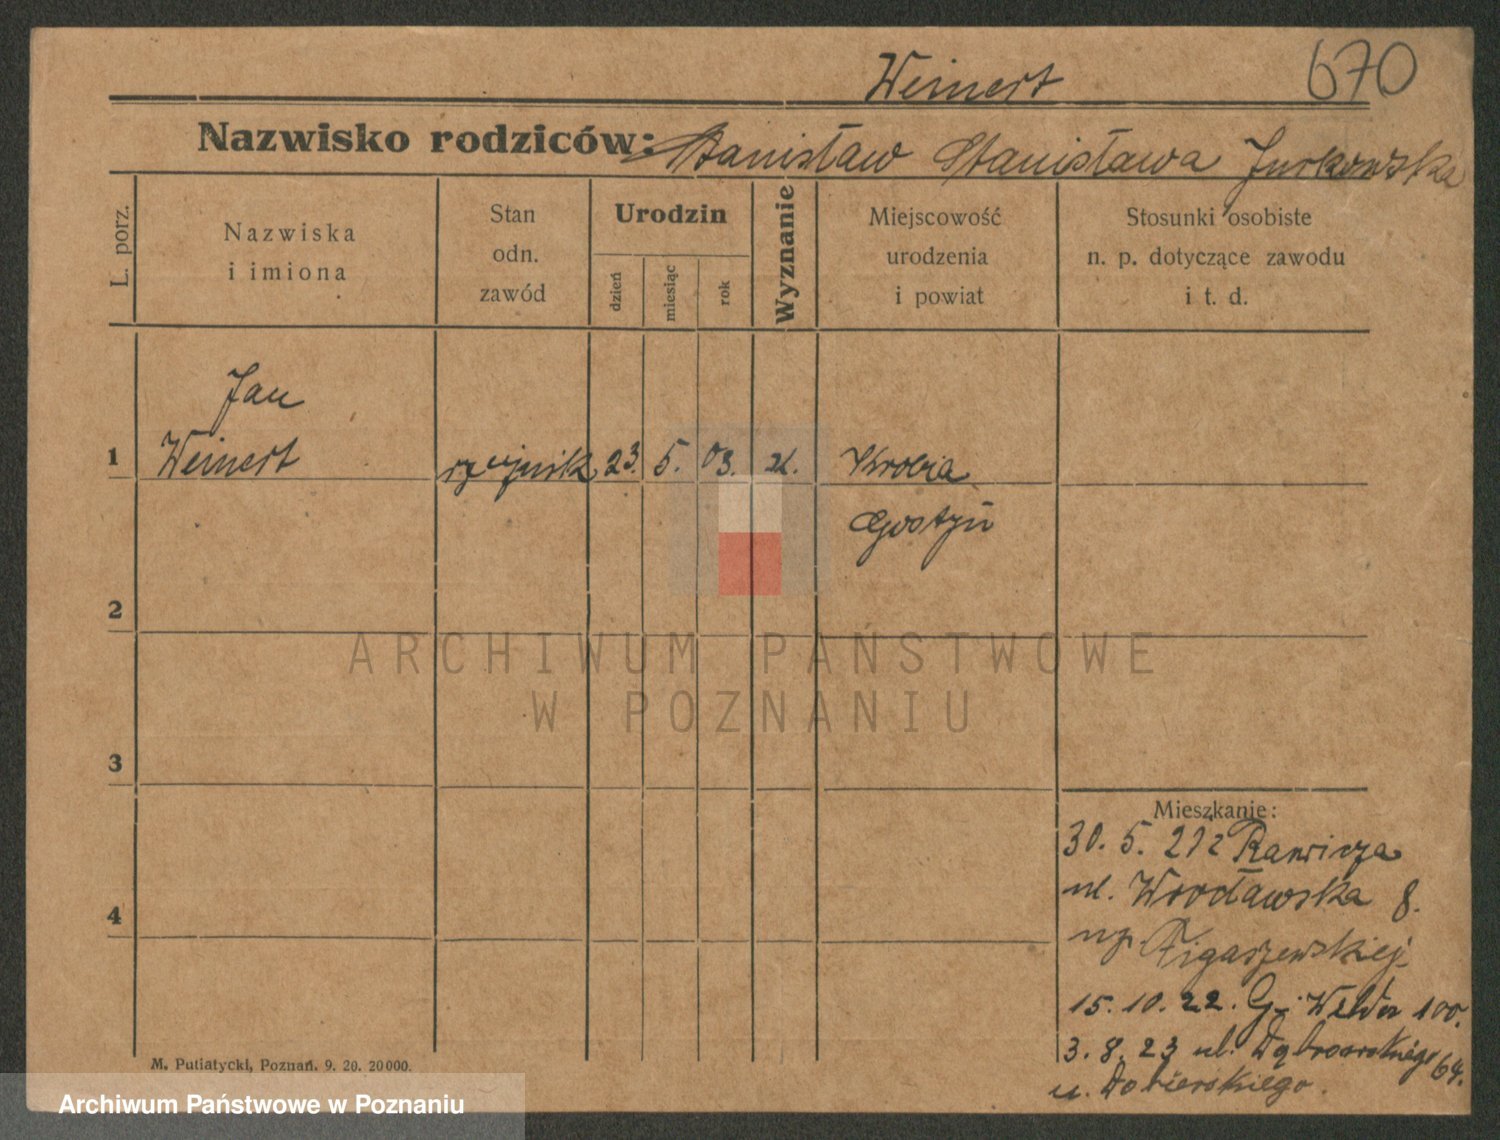 Weinert
670
Nazwisko rodziców: Stanisław Stanisława Jurkowska
L. porz.
Nazwiska
i imiona
Stan
odn.
zawód
Urodzin
dzień
miesiąc
rok
Wyznanie
Miejscowość
urodzenia
i powiat
Stosunki osobiste
n. p. dotyczące zawodu
i t. d.
Jan
1 Weinert rzeźnik 23. 5. 03. Krobia
Gostyń
2
3
4
ARCHIWUM PAŃSTWOWE
W POZNANIU
Mieszkanie:
30. 5. 21 z Rawicza
ul. Wrocławska 8.
15. 10. 22. G. Wilda 100.
3. 8. 23 ul. Dąbrowskiego 64.
u. Dobierskiego.
M. Putiatycki, Poznań. 9. 20. 20000.
Archiwum Państwowe w Poznaniu